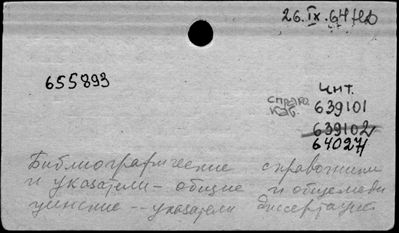 26.IX.64
655893
Чит.
справ.
каб.
639101
639102
64027
Библиографические справочники
и указатели - общие и общемеди
цинские -- указатели диссертаций